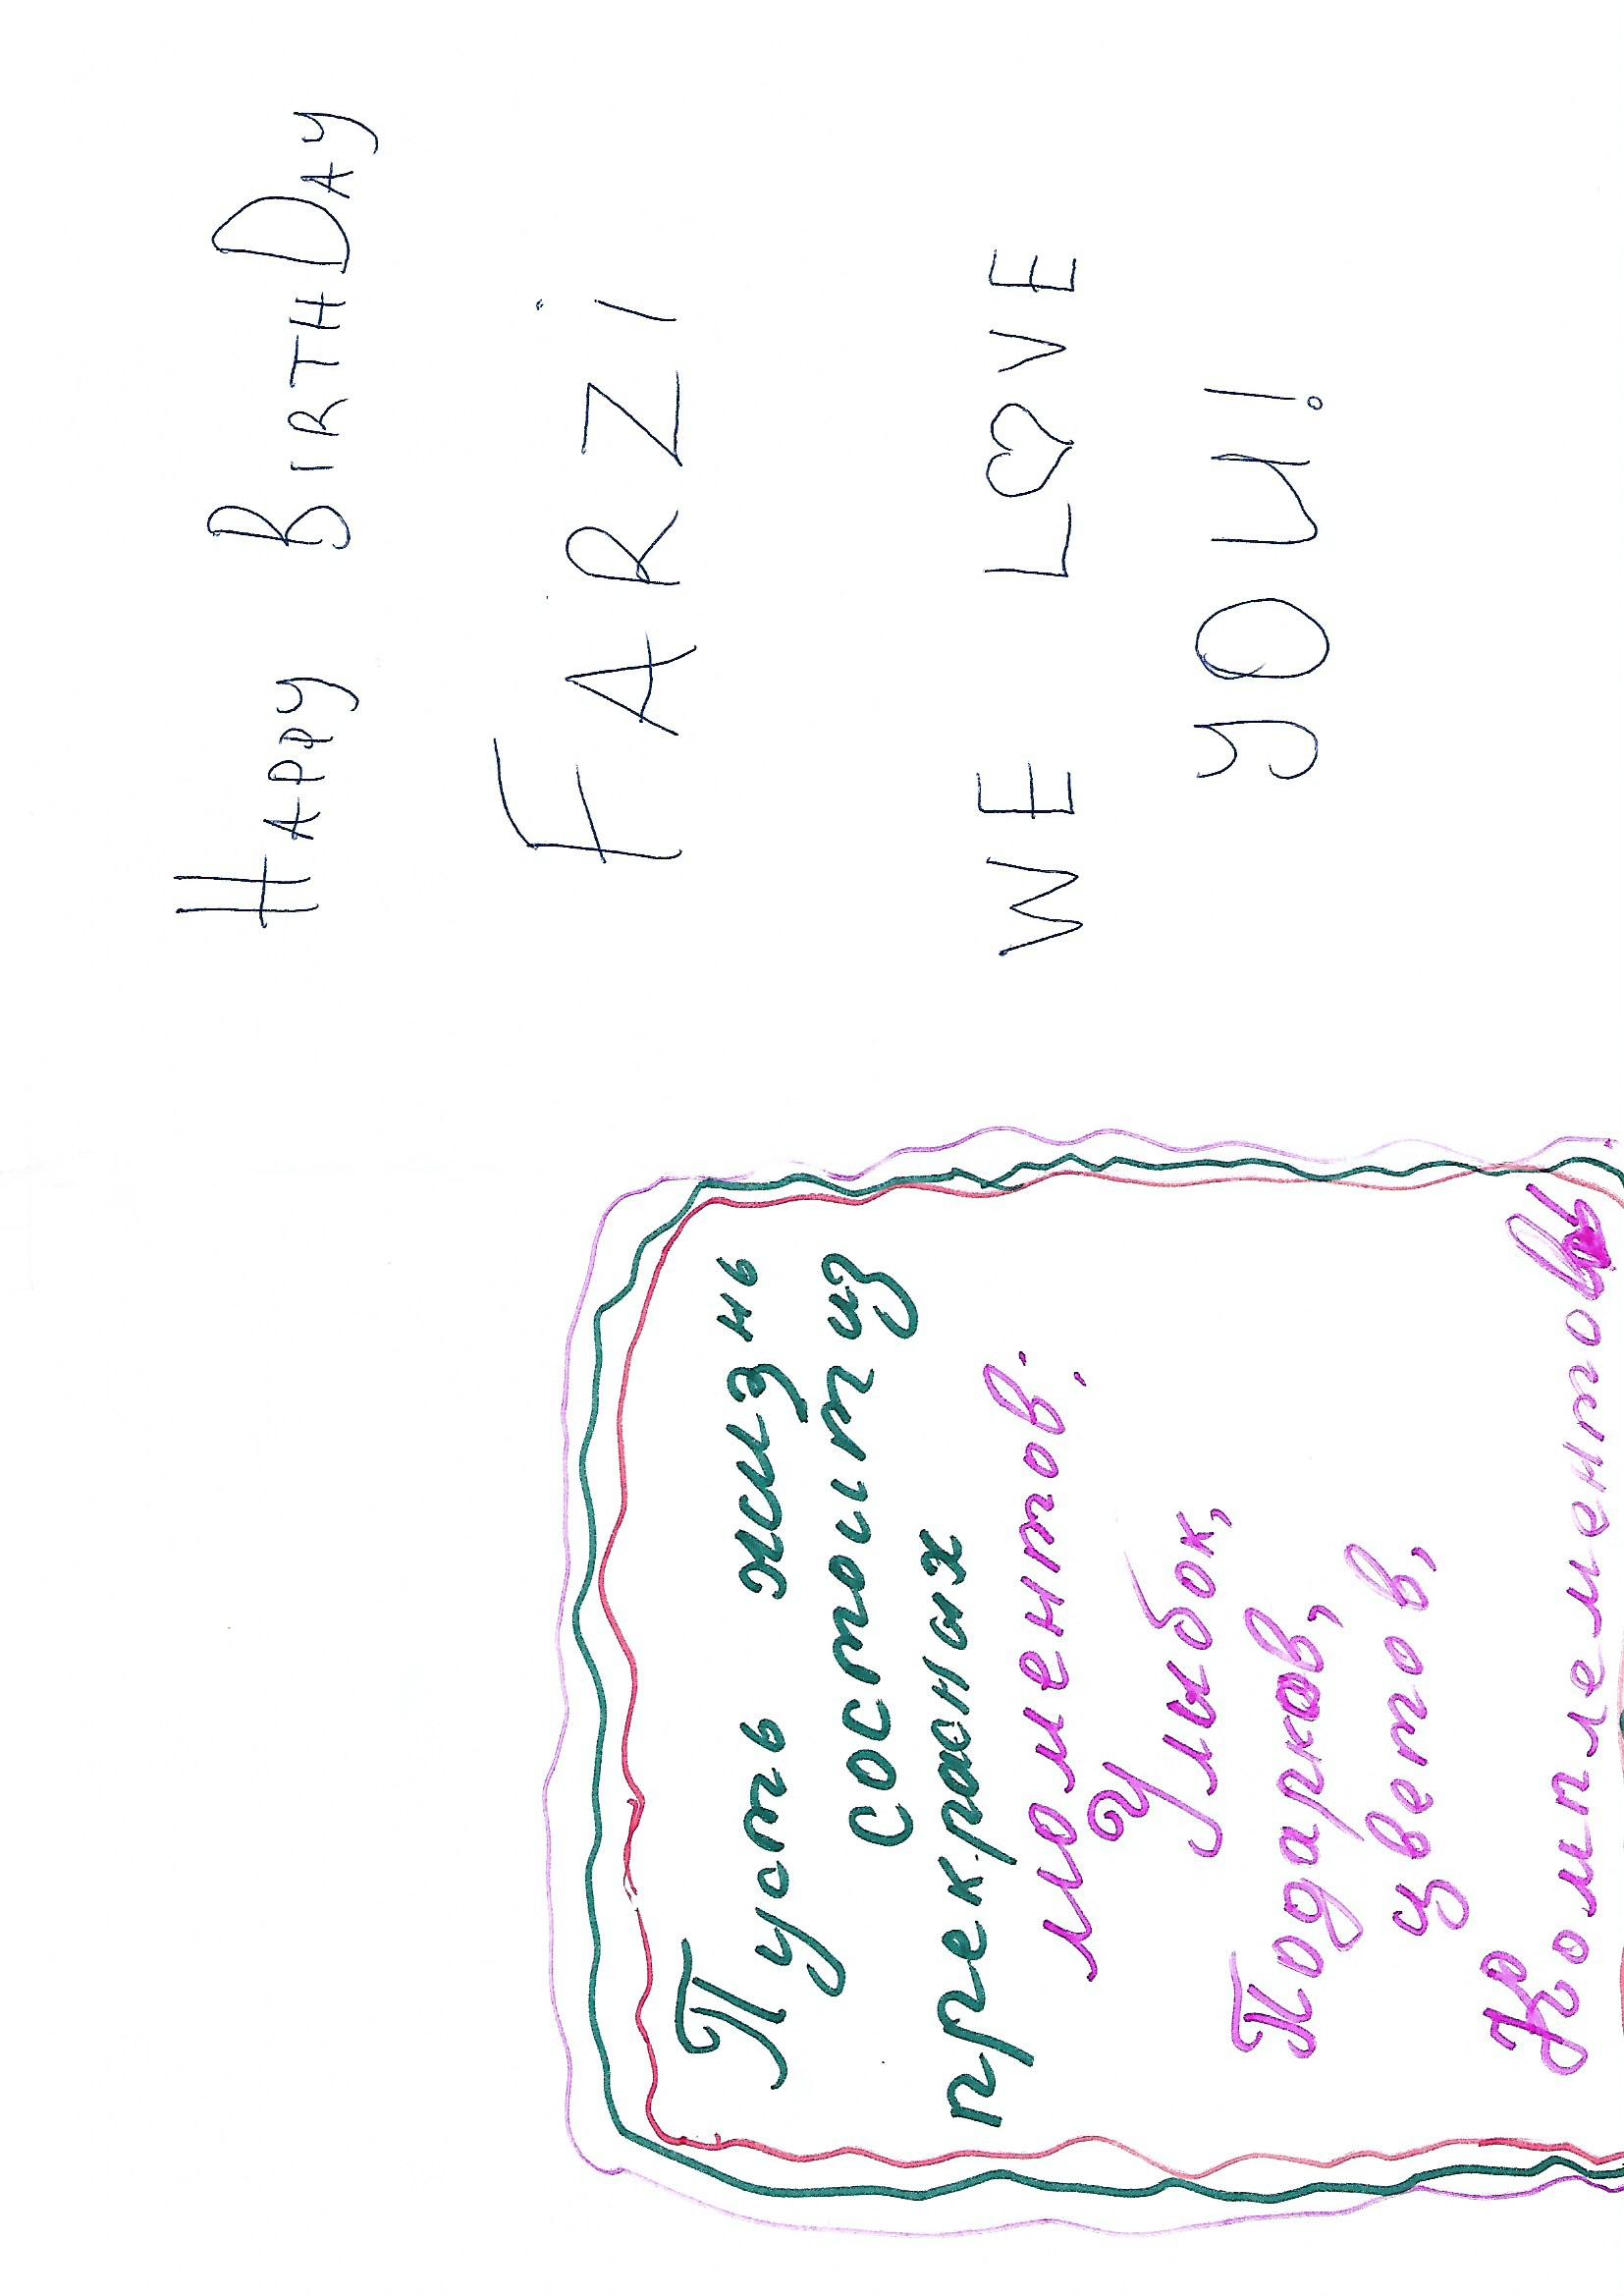 Пусть жизнь
состоит из
прекрасных
моментов:
Улыбок,
Подарков,
цветов,
Комплементов
Happy BirthDay
FARZi
WE L♡VE
YOU!